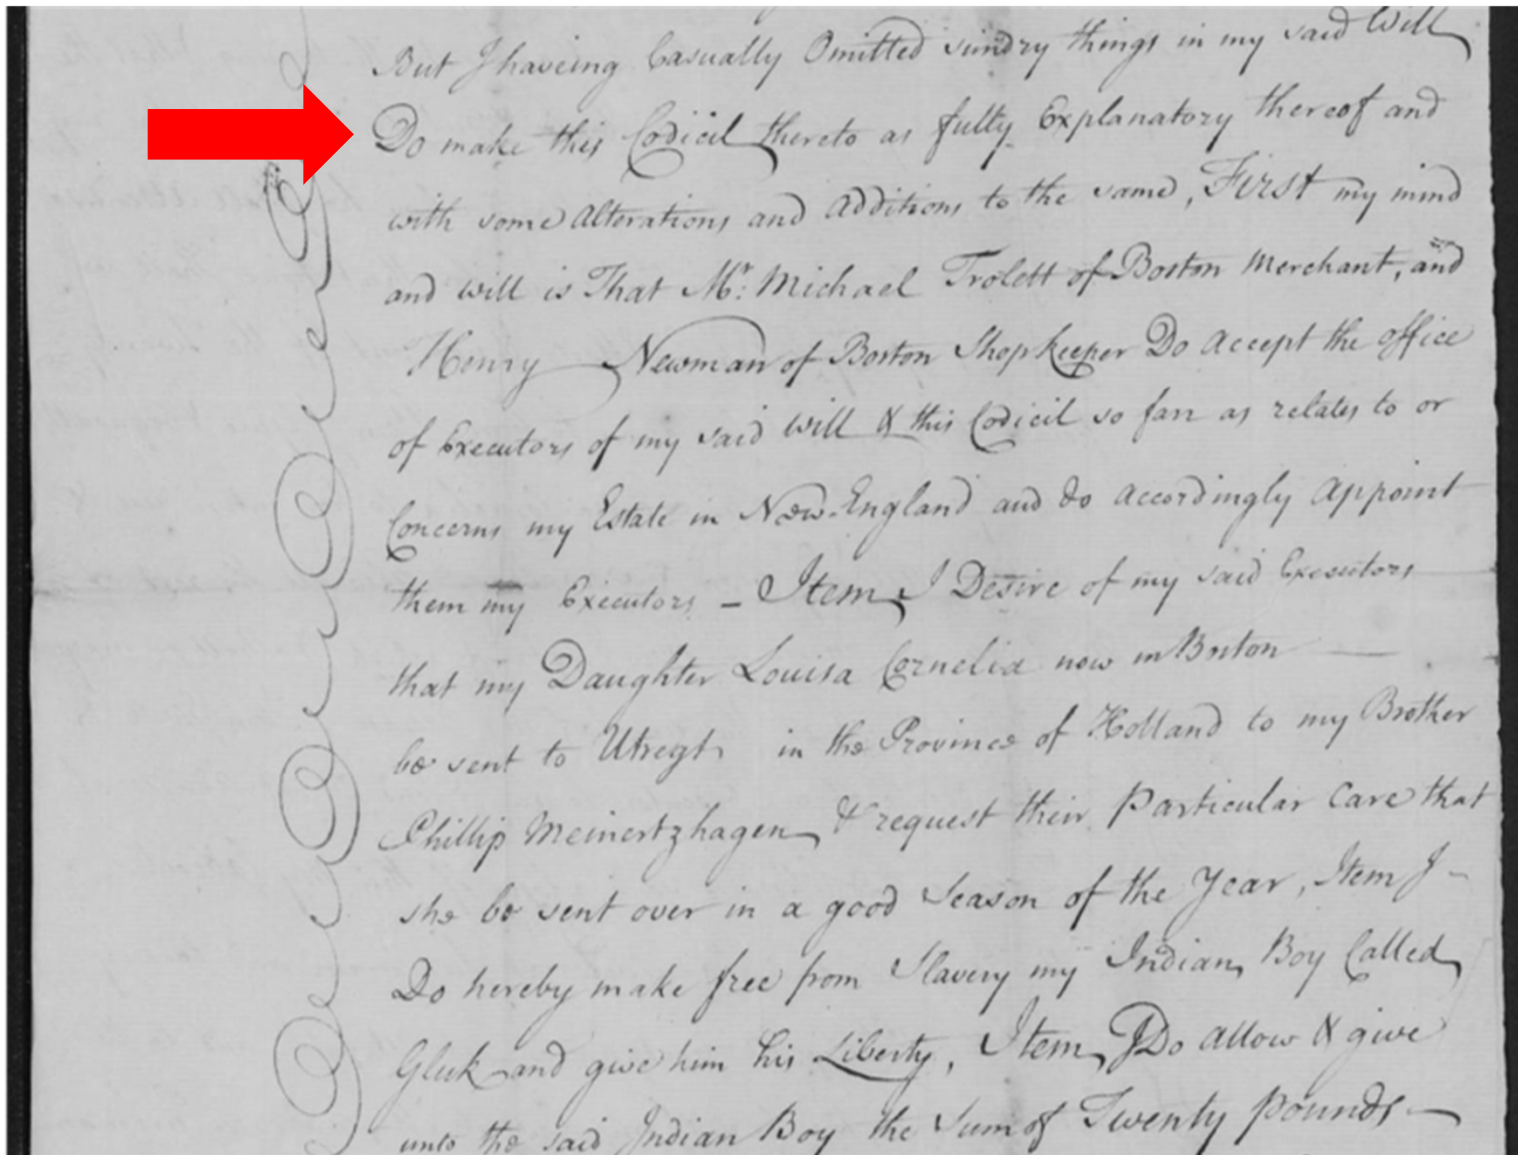 But I haveing Casually Omitted sundry things in my said Will
Do make this Codicil thereto as fully Explanatory thereof and
with some Alterations and Additions to the same, First my mind
and will is That Mr: Michael Trolett of Boston Merchant, and
Henry Newman of Boston Shopkeeper Do Accept the office
of Executors of my said Will & this Codicil so farr as relates to or
Concerns my Estate in New-England and do accordingly Appoint
them my Executors - Item, I Desire of my said Executors
that my Daughter Louisa Cornelia now in Boston
be sent to Utregt in the Province of Holland to my Brother
Phillip Meinertzhagen, & request their Particular Care that
she be sent over in a good Season of the Year, Item I
Do hereby make free from Slavery my Indian Boy Called
Gluk and give him his Liberty, Item, I Do allow & give
unto the said Indian Boy the Sum of Twenty Pounds